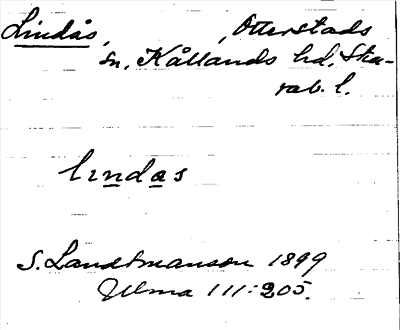 Lindås, , Otterstads
sn, Kållands hd, Ska-
rab. l.
lindas
S. Landtmanson 1899
Ulma 111:205.